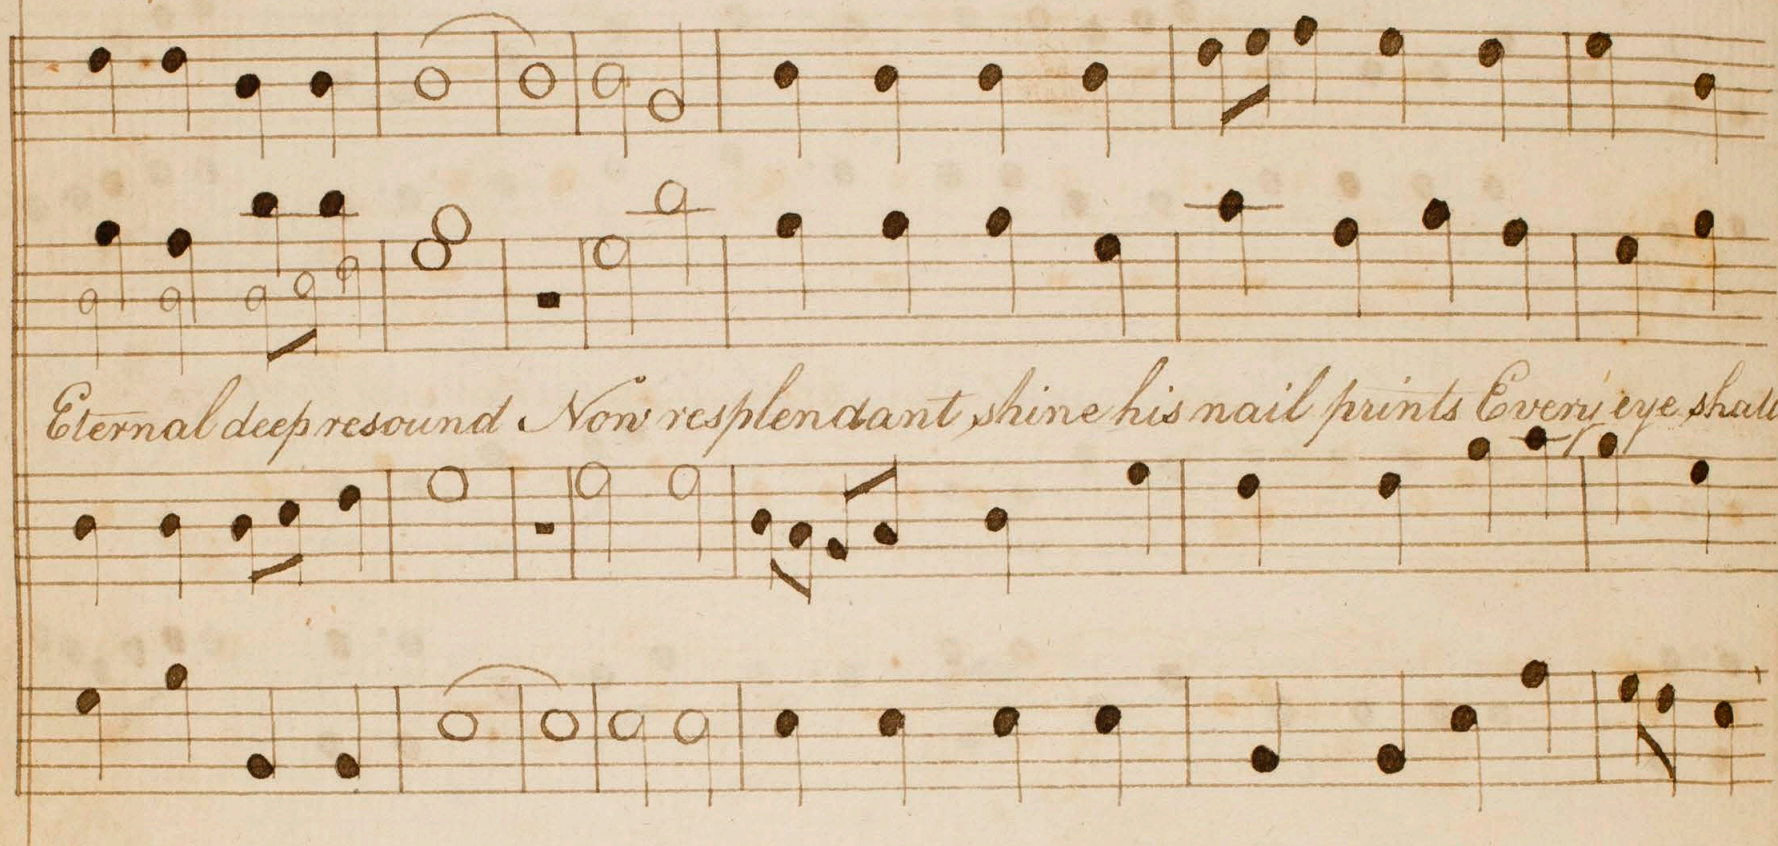 Eternal deep resound Now resplendant shine his nail prints Every eye shall